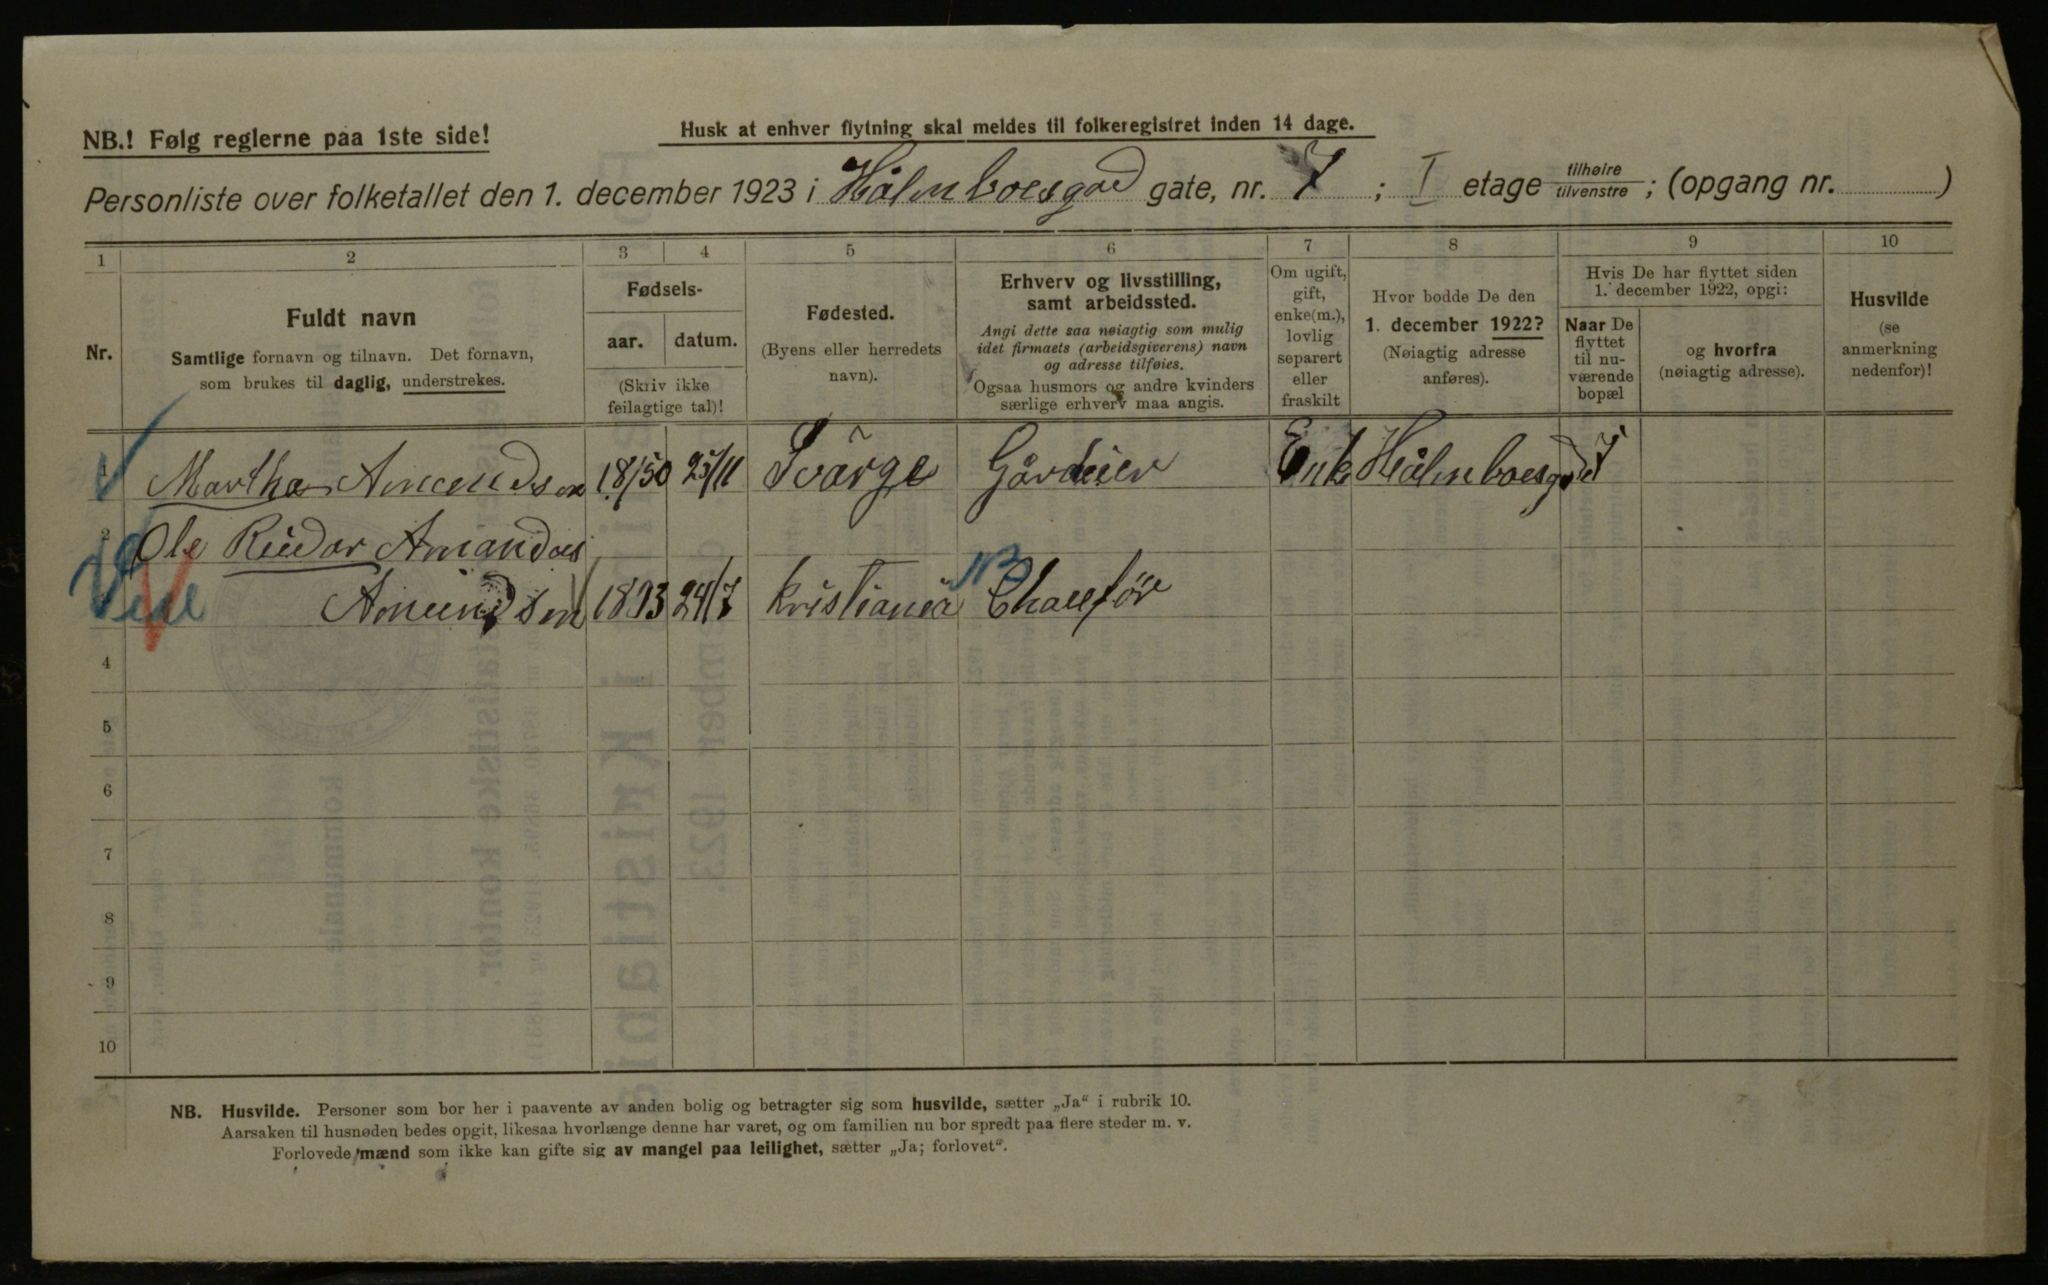 NB.! Følg reglerne paa 1ste side!
Husk at enhver flytning skal meldes til folkeregistret inden 14 dage.
Personliste over folketallet den 1. december 1923 i Hålmboesgad gate, nr. 7 ; I etage tilhøire/tilvenstre ; (opgang nr. )
1 2 3 4 5 6 7 8 9 10
Nr.
Fuldt navn
Samtlige fornavn og tilnavn. Det fornavn,
som brukes til daglig, understrekes.
Fødsels-
aar. datum.
(Skriv ikke
feilagtige tal)!
Fødested.
(Byens eller herredets
navn).
Erhverv og livsstilling,
samt arbeidssted.
Angi dette saa nøiagtig som mulig
idet firmaets (arbeidsgiverens) navn
og adresse tilføies.
Ogsaa husmors og andre kvinders
særlige erhverv maa angis.
Om ugift,
gift,
enke(m.),
lovlig
separert
eller
fraskilt
Hvor bodde De den
1. december 1922?
(Nøiagtig adresse
anføres).
Hvis De har flyttet siden
1. december 1922, opgi:
Naar De
flyttet
til nu-
værende
bopæl
og hvorfra
(nøiagtig adresse).
Husvilde
(se
anmerkning
nedenfor)!
1 Martha Amundsen 1850 25/11 Tvärge Gårdeier Enke Hålmboesgd 7
2 Ole Reidar Amandus
Amundsen 1893 24/7 Kristiania NB Chauffør
4
5
6
7
8
9
10
NB. Husvilde. Personer som bor her i paavente av anden bolig og betragter sig som husvilde, sætter „Ja“ i rubrik 10.
Aarsaken til husnøden bedes opgit, likesaa hvorlænge denne har varet, og om familien nu bor spredt paa flere steder m. v.
Forlovede mænd som ikke kan gifte sig av mangel paa leilighet, sætter „Ja; forlovet“.